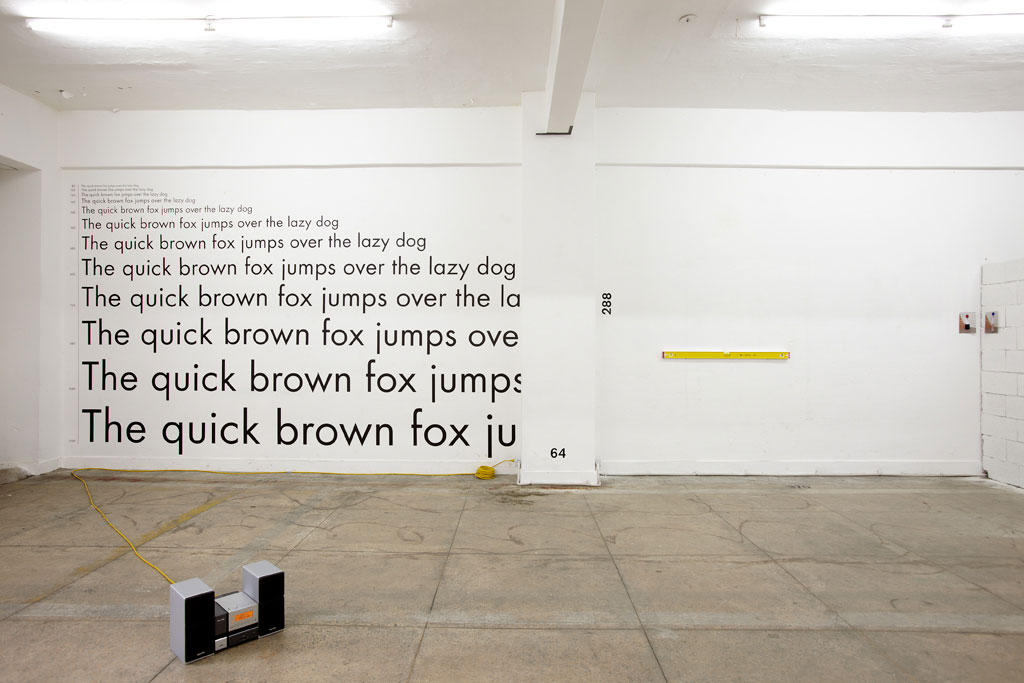 The quick brown fox jumps over the lazy dog
The quick brown fox jumps over the lazy dog
The quick brown fox jumps over the lazy dog
The quick brown fox jumps over the lazy dog
The quick brown fox jumps over the lazy dog
The quick brown fox jumps over the lazy dog
The quick brown fox jumps over the lazy dog
The quick brown fox jumps over the lazy dog
The quick brown fox jumps over the la
The quick brown fox jumps ove
The quick brown fox jumps
The quick brown fox ju
64
288